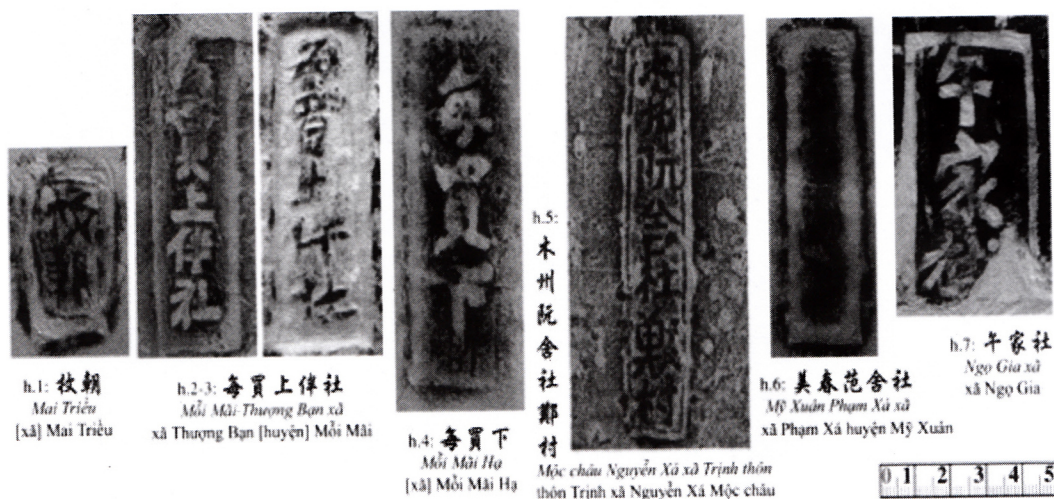 每買上伴社
每買上伴社
每買下
午家社
h.1: 枚朝
Mai Triều
[xã] Mai Triều
h.2-3: 每買上伴社
Mỗi Mãi Thượng Bạn xã
xã Thượng Bạn [huyện] Mỗi Mãi
h.4: 每買下
Mỗi Mãi Hạ
[xã] Mỗi Mãi Hạ
h.5:
木州阮舍社鄭村
Mộc châu Nguyễn Xá xã Trịnh thôn
thôn Trịnh xã Nguyễn Xá Mộc châu
h.6: 美春范舍社
Mỹ Xuân Phạm Xá xã
xã Phạm Xá huyện Mỹ Xuân
h.7: 午家社
Ngọ Gia xã
xã Ngọ Gia
0 1 2 3 4 5